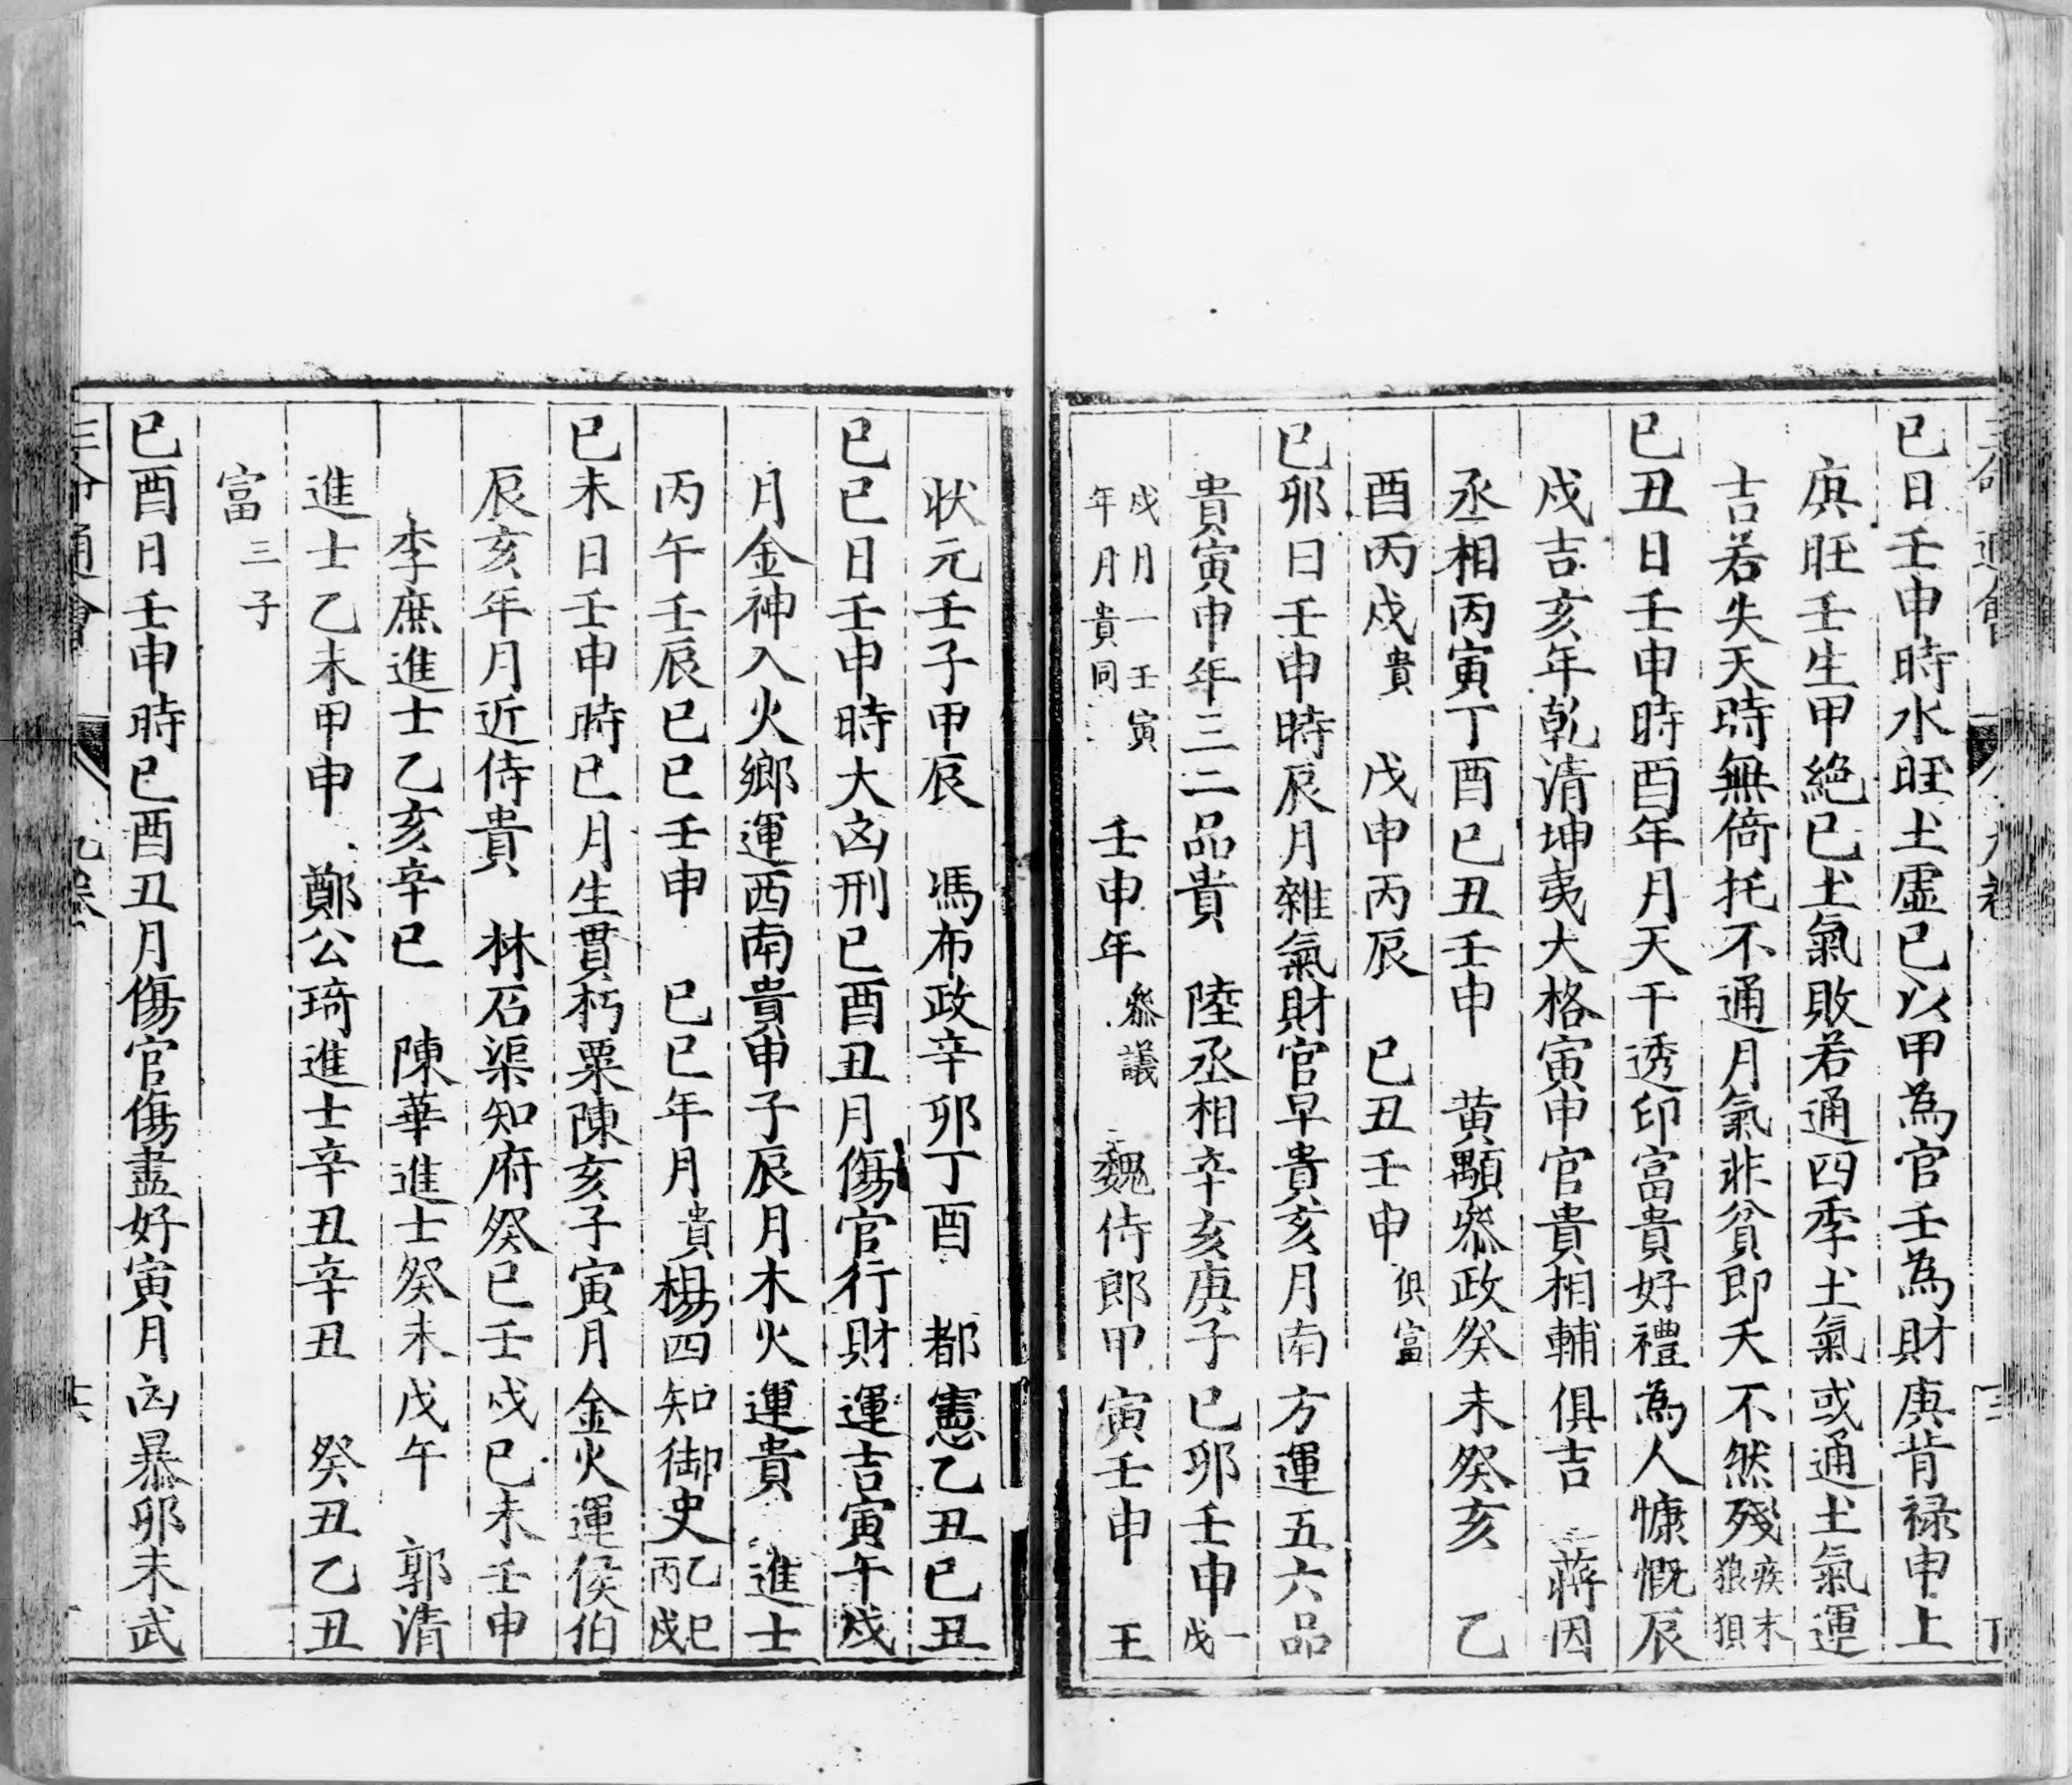 己日壬申時水旺土虛己以甲為官壬為財庚背禄申上
庚旺壬生甲絕己土氣敗若通四季土氣或通土氣運
吉若失天時無倚托不通月氣非貧即夭不然殘疾末狼狽
己丑日壬申時酉年月天干透印富貴好禮為人慷慨辰
戌吉亥年乾清坤夷大格寅申官貴相輔俱吉 蔣因
丞相丙寅丁酉己丑壬申 黄顯叅政癸未癸亥 乙
酉丙戌貴 戊申丙辰 己丑壬申俱富
己卯日壬申時辰月雜氣財官早貴亥月南方運五六品
貴寅申年三二品貴 陸丞相辛亥庚子己卯壬申一戊
戌月一壬寅年月貴同 壬申年叅議 魏侍郎甲寅壬申 王
状元壬子甲辰 馮布政辛卯丁酉 都憲乙丑己丑
己巳日壬申時大凶刑己酉丑月傷官行財運吉寅午戌
月金神入火鄉運西南貴申子辰月木火運貴 進士
丙午壬辰己巳壬申 己巳年月貴楊四知御史乙巳丙戌
己未日壬申時己月生貫朽粟陳亥子寅月金火運侯伯
辰亥年月近侍貴 林石渠知府癸巳壬戌己未壬申
李庶進士乙亥辛巳 陳華進士癸未戊午 郭清
進士乙未甲申 鄭公琦進士辛丑辛丑 癸丑乙丑
富三子
己酉日壬申時己酉丑月傷官傷盡好寅月凶暴卯未武